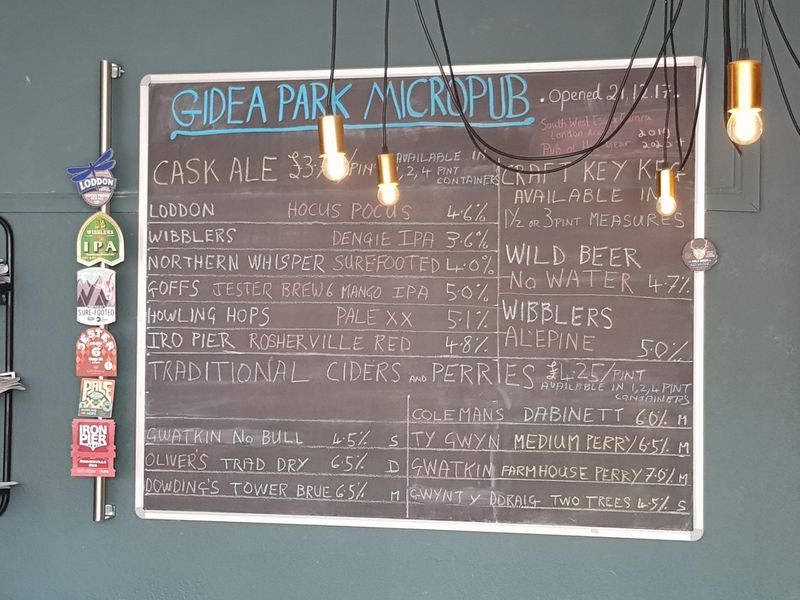 GIDEA PARK MICROPUB
. Opened 21,12.17.
South West Essex Camra
2019
Pub of the year
CASK ALE £3.
PINT
AVAILABLE IN
1, 2, 4 PINT
CONTAINERS
LODDON HOCUS POCUS 4.6%
WIBBLERS DENGIE IPA 3.6%
NORTHERN WHISPER SUREFOOTED 4.0%
GOFFS JESTER BREW 6 MANGO IPA 5.0%
HOWLING HOPS PALE XX 5.1%
IRO PIER ROSHERVILLE RED 4.8%
CRAFT KEY KEG
AVAILABLE IN
1/2 OR 3 PINT MEASURES
WILD BEER
NO WATER 4.7%
WIBBLERS
ALEPINE 5.0%
TRADITIONAL CIDERS AND PERRIES £4.25/PINT
AVAILABLE IN 1,2,4 PINT
CONTAINERS
GWATKIN NO BULL 4.5% S
OLIVER'S TRAD DRY 6.5% D
DOWDING'S TOWER BRUE 6.5% M
COLEMANS DABINETT 6.0% M
TY GWYN MEDIUM PERRY 6.5% M
GWATKIN FARMHOUSE PERRY 7.0% M
GWYNT Y DDRAIG TWO TREES 4.5% S
LODDON
WIBBLERS
IPA
SURE-FOOTED
JESTER
6
PALE
IRON
PIER
ROSHERVILLE
RED